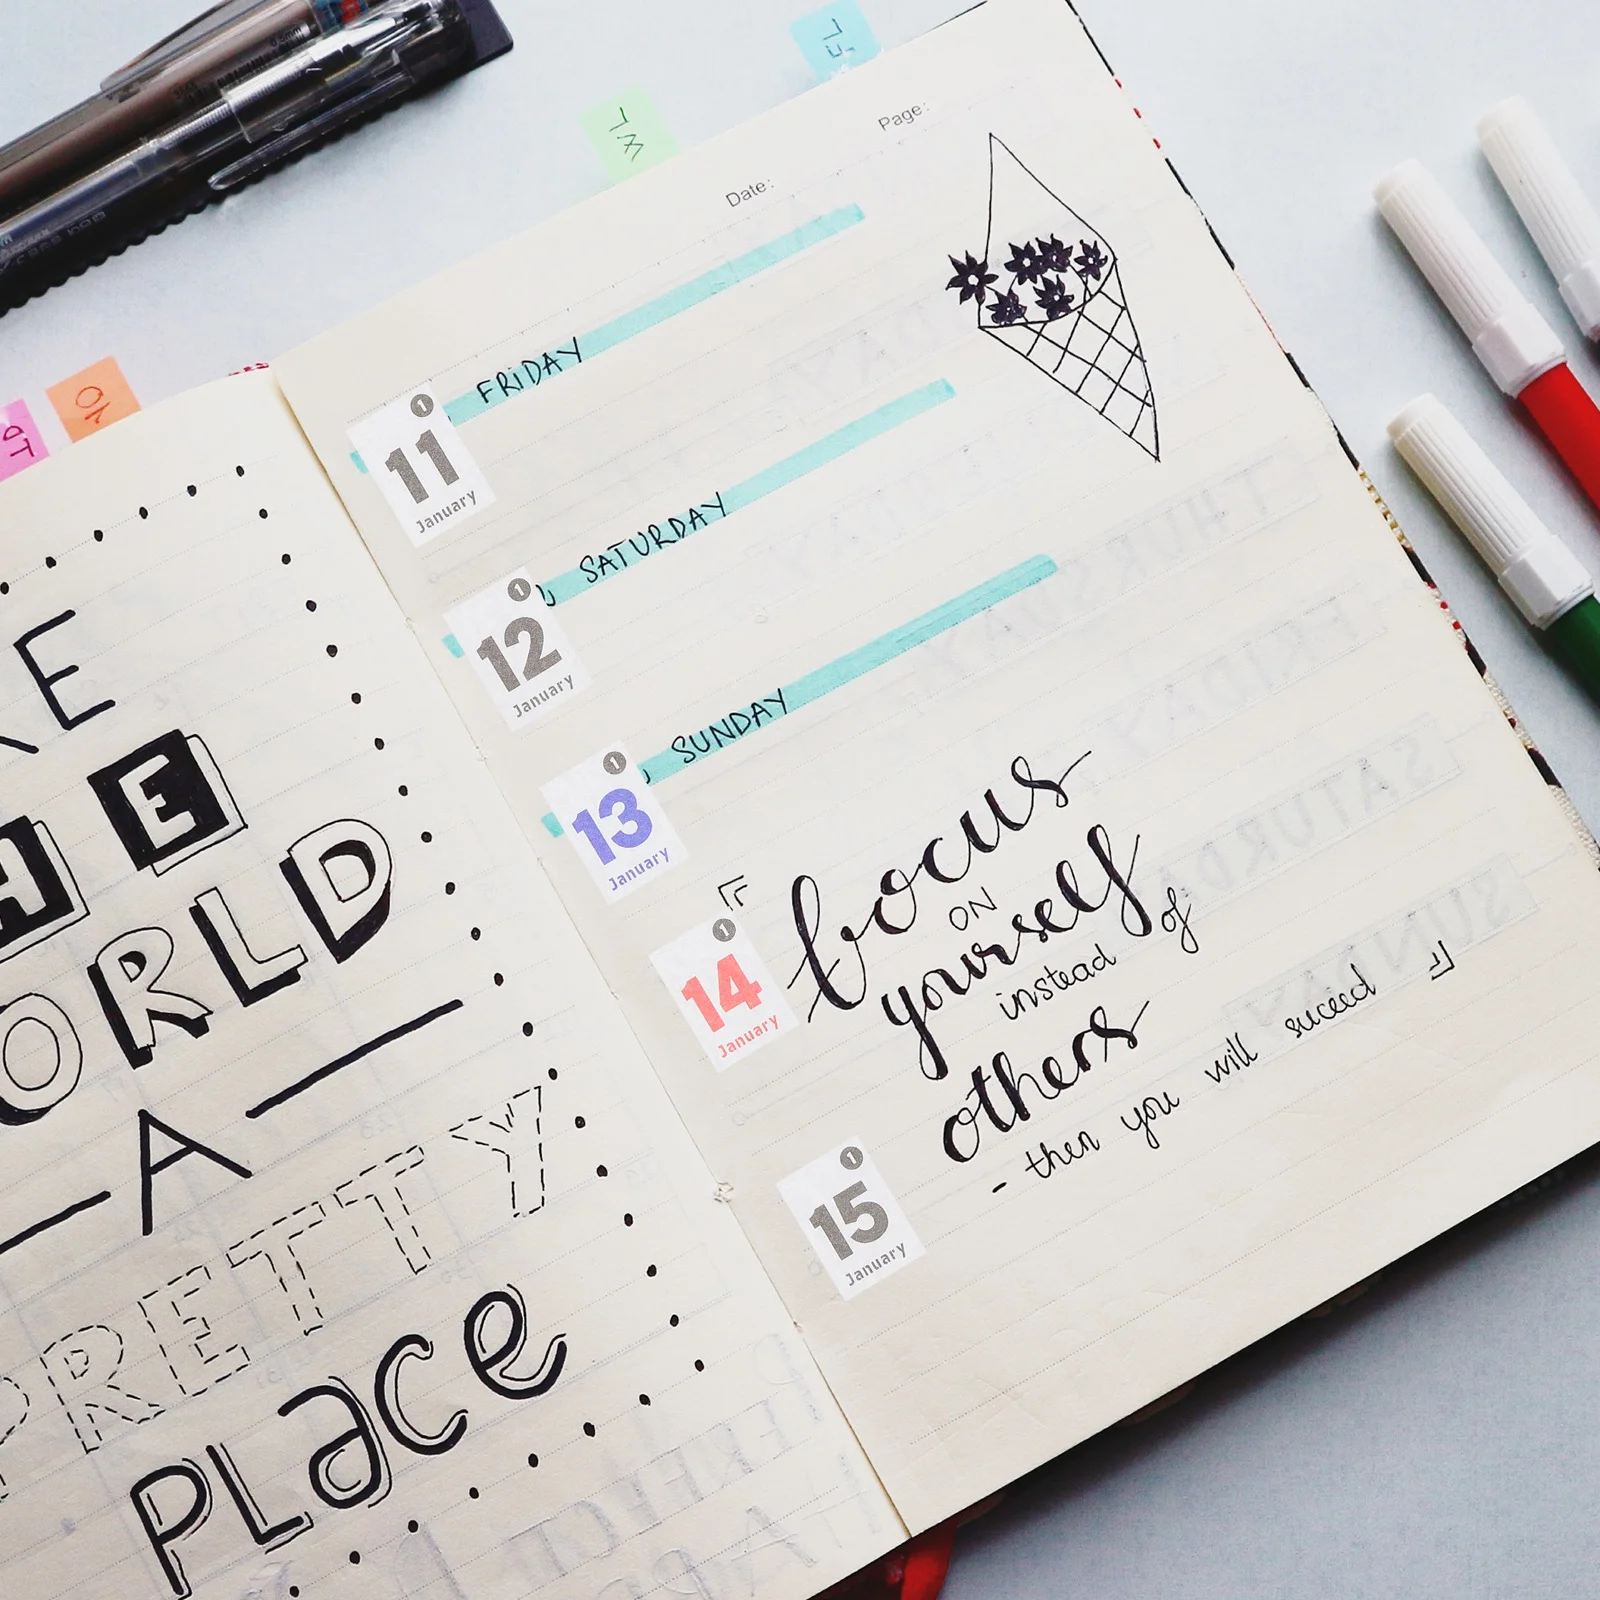 KE
HE
ORLD
A
PRETTY
PLace
Date:
Page:
FRiDAY
1
11
January
SATURDAY
1
12
January
SUNDAY
1
13
January
1
14
January
focus
ON
yourself
instead of
others
- then you will suceed
1
15
January